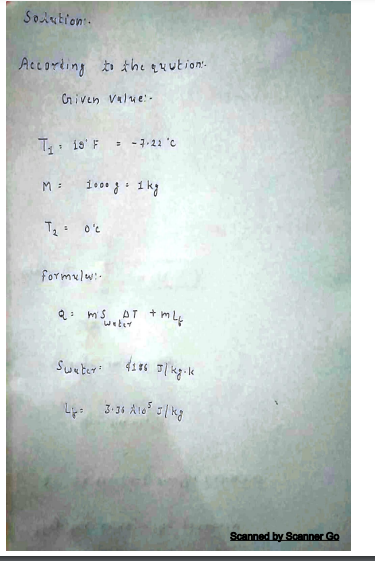 Solution:-
According to the qution:-
Given value:-
T1 = 19° F = -7.22 °C
M = 1000 g = 1 kg
T2 = 0°C
formula:-
Q = mS water ΔT + mLf
Swater = 4186 J/kg.k
Lf = 3.36 X10⁵ J/kg
Scanned by Scanner Go